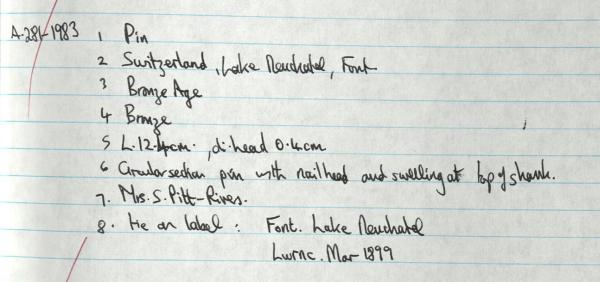 A.281-1983 1 Pin
2 Switzerland, Lake Neuchatel, Font
3 Bronze Age
4 Bronze
5 L.12.4cm. , di.head 0.4cm
6 Circular section pin with nail head and swelling at top of shank.
7. Mrs. S. Pitt-Rivers.
8. He on label : Font. Lake Neuchatel
Lwrnc. Mar 1899